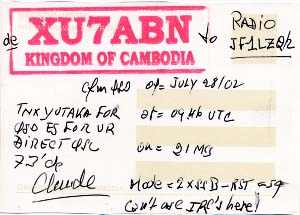 de XU7ABN to RADIO
KINGDOM OF CAMBODIA JF1LZQ/2
Cfm QSO of= JULY 28/02
TNX YUTAKA FOR
QSO ES FOR UR at= UTC
DIRECT QSL
73' de on= 21 MG
Claude
Mode= 2xSSB-RST=59
Can't use IRC's here!